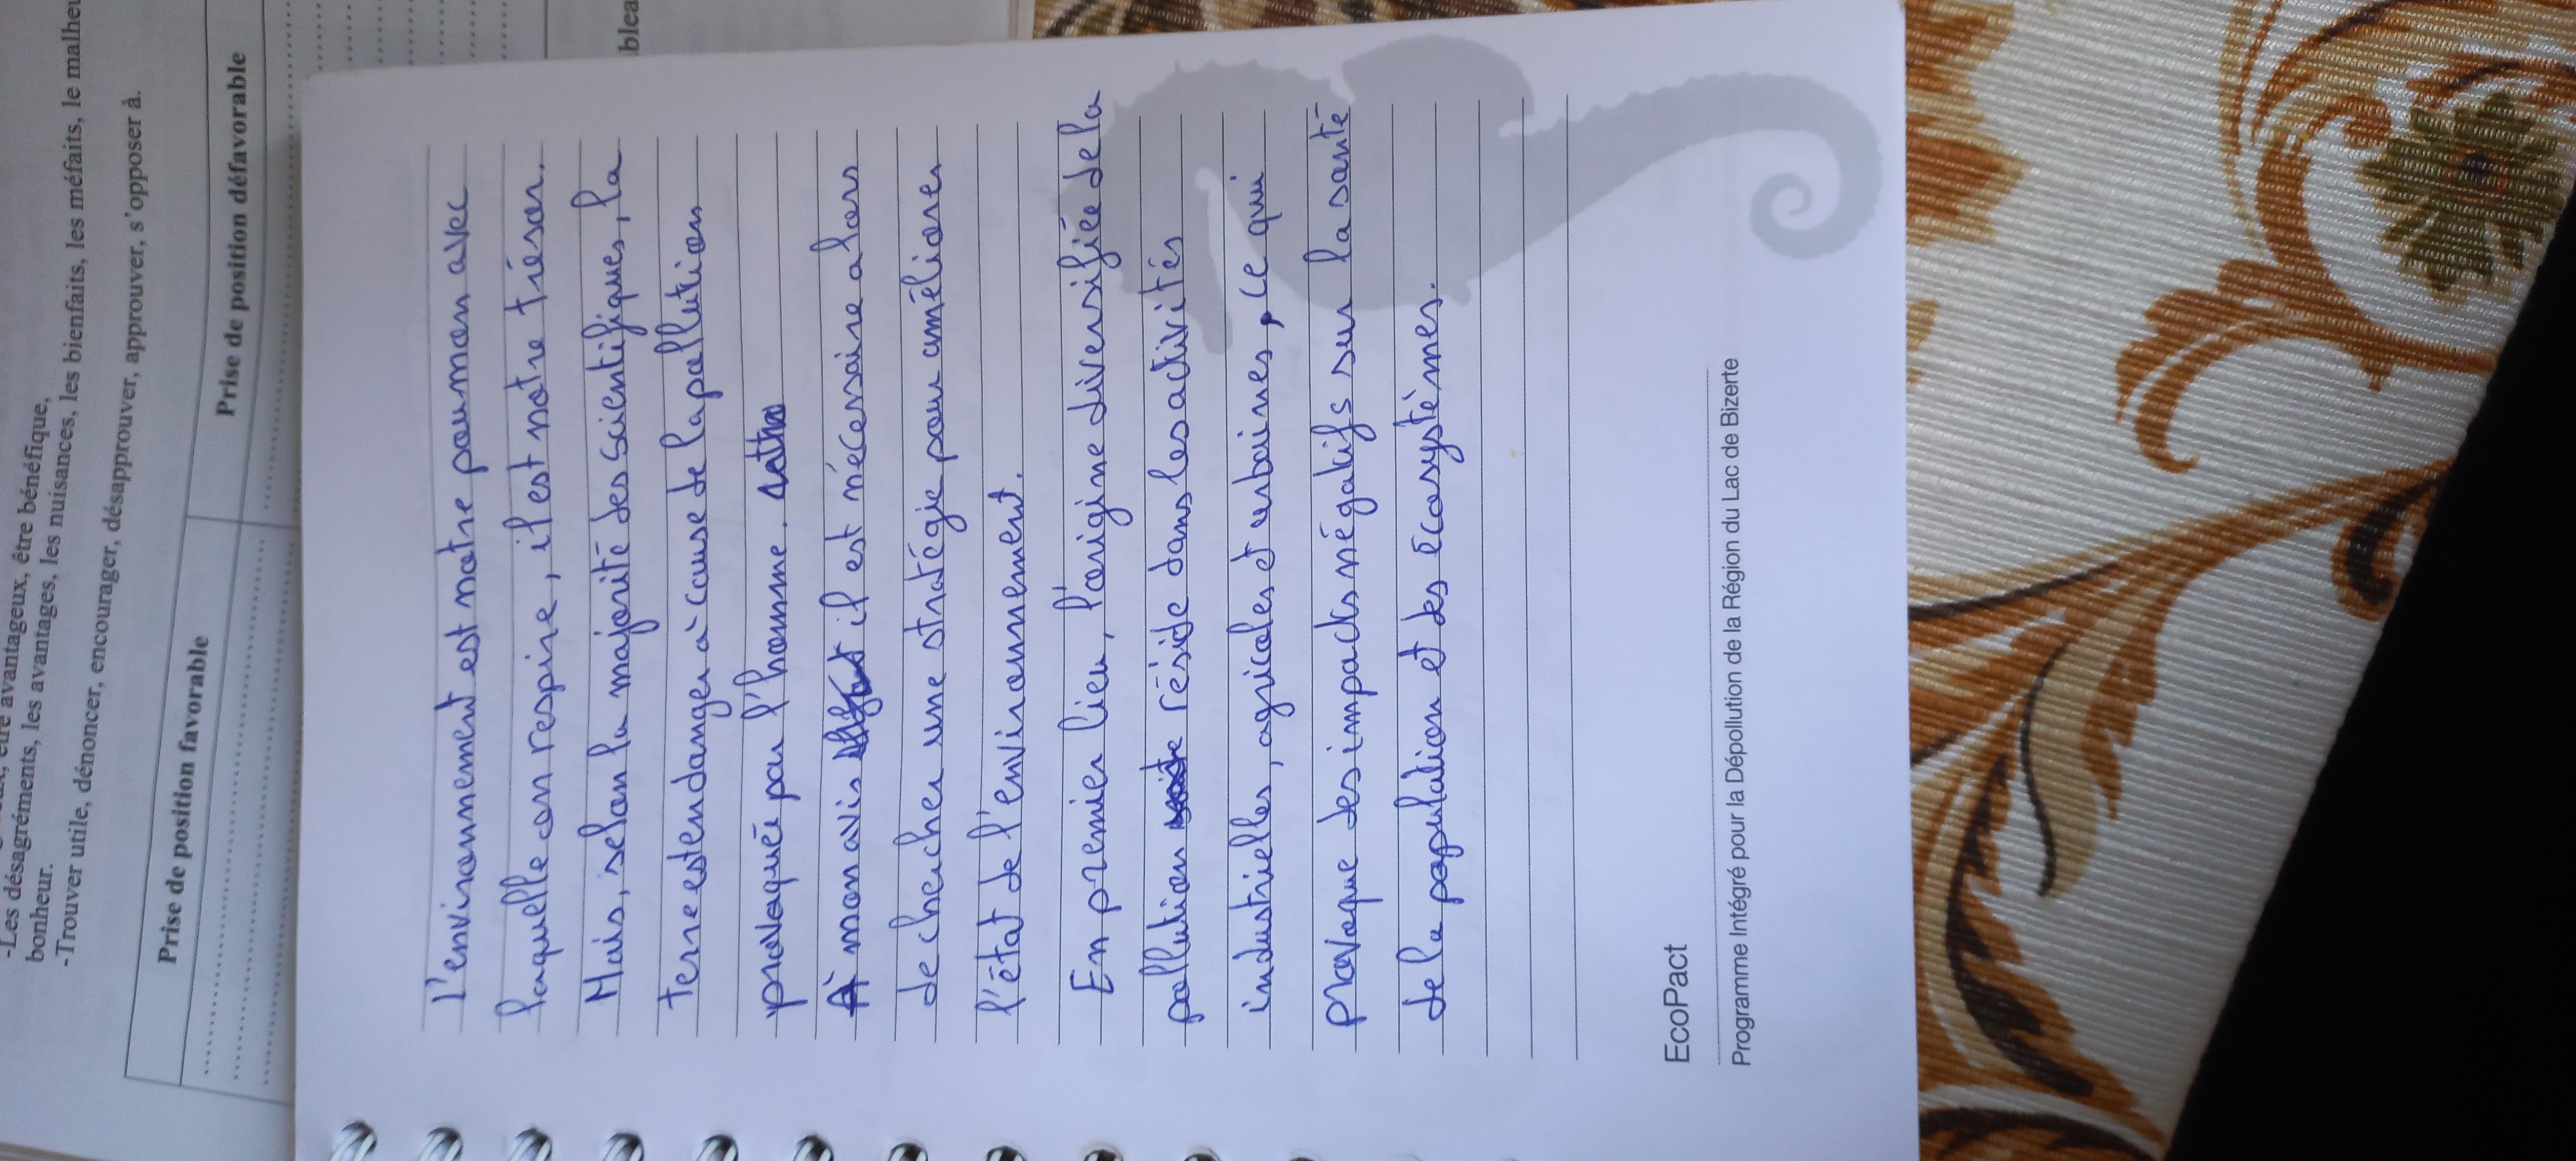 -Les désagréments, les avantages, les nuisances, les bienfaits, les méfaits, le malheu
avantageux, être bénéfique,
bonheur.
-Trouver utile, dénoncer, encourager, désapprouver, approuver, s'opposer à.
Prise de position favorable
Prise de position défavorable
blea
L'environnement est notre poumon avec
laquelle on respire, il est notre trésor.
Mais, selon la majorité des scientifiques, la
Terre est en danger à cause de la pollution
provoquée par l'homme.
À mon avis il est nécessaire alors
de chercher une stratégie pour améliorer
l'état de l'environnement.
En premier lieu, l'origine diversifiée de la
pollution réside dans les activités
industrielles, agricoles et urbaines, ce qui
provoque des impacts négatifs sur la santé
de la population et des écosystèmes.
EcoPact
Programme Intégré pour la Dépollution de la Région du Lac de Bizerte